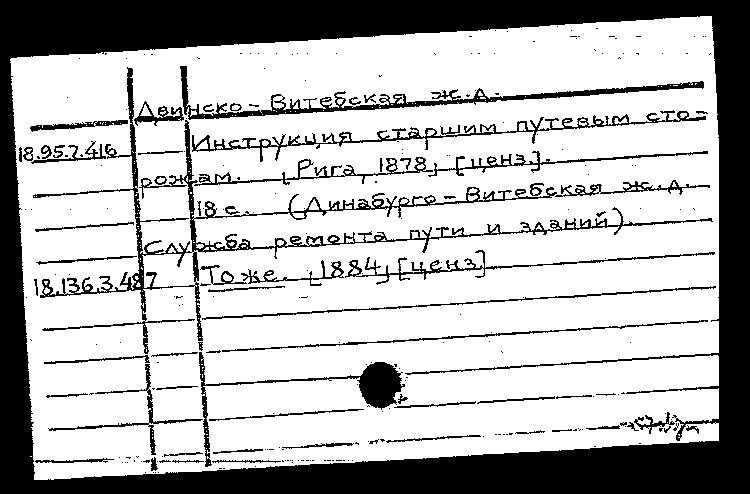 Двинско-Витебская ж.д.
18.95.7.416 Инструкция старшим путевым сто=
рожам. [Рига, 1878] [ценз].
18 с. (Динабурго-Витебская ж.д.
Служба ремонта пути и зданий).
18.136.3.487 Тоже. [1884] [ценз]